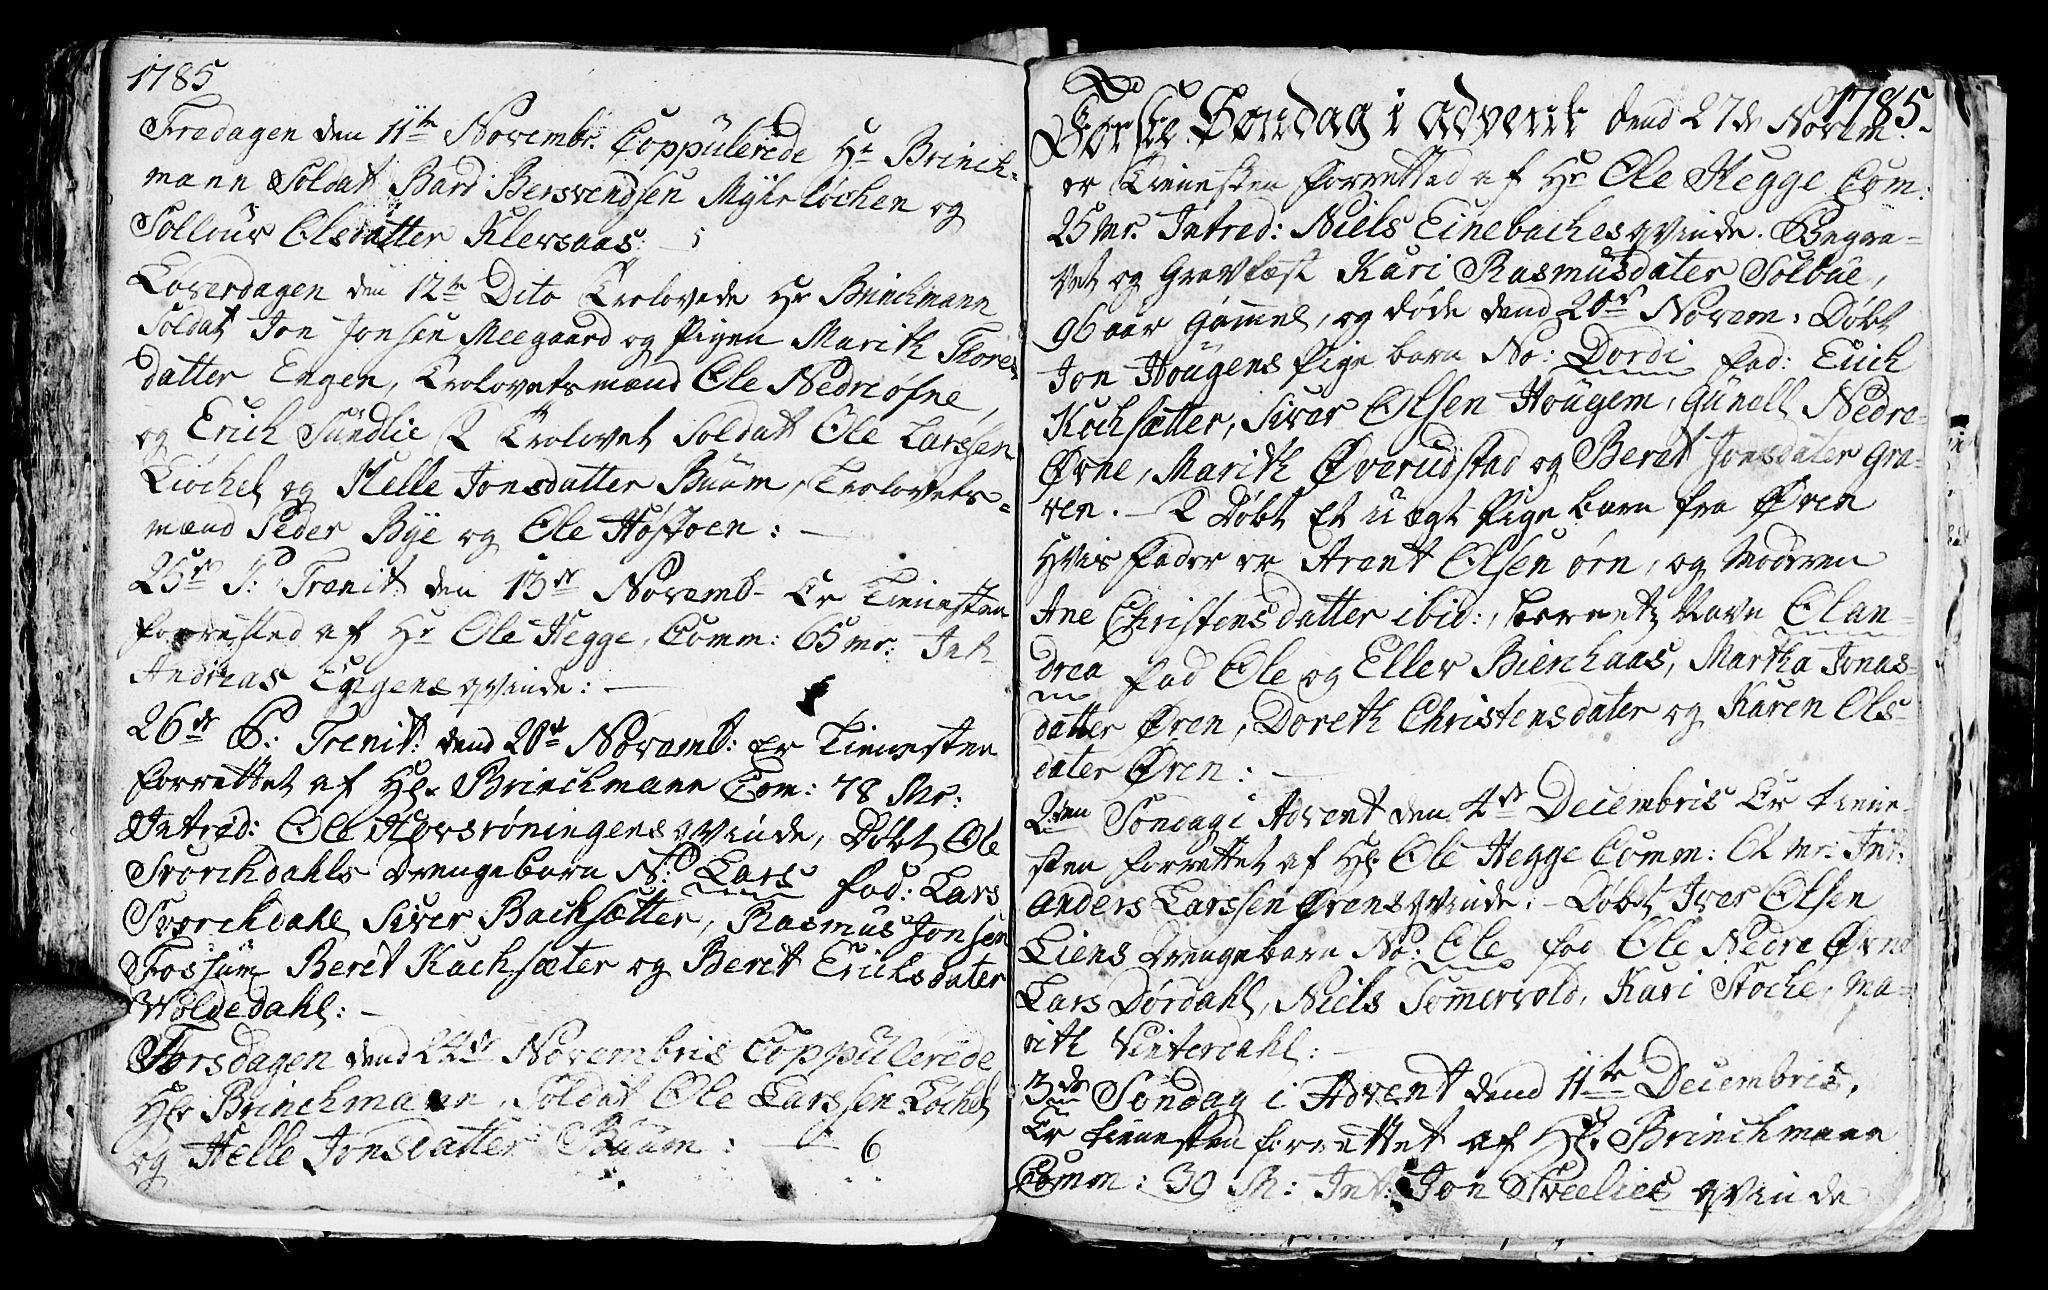 1785
Fredagen den 11te Novembr. Coppulerede Hr Brinck-
mann Soldat Bard Bersvendsen Myhrløchen og
Sollour Olsdatter Klevsaas:
Løverdagen den 12te Dito Trolovede Hr Brinchmann
Soldat Jon Jonsen Meegaard og Pigen Marith Thores
datter Engen, Trolovetsmænd Ole Nedreofne,
og Erich Sundlie 2 Trolovet Soldat Ole Larssen
Liøchel og Helle Jonsdatter Buum, Trolovets-
mænd Peder Bye og Ole Hoftoen: —
25de S: Trenit: den 13de Novemb- Er Tienesten
forretted af Hr Ole Hegge, Comm: 65 mr: Int-
Andreas Eggens qvinde: —
26de S: Trenit: dend 20de Novemb: Er Tienesten
forrettet af Hr. Brinchmann Com: 78 Mr:
Introd: Ole Hovsrøningens qvinde, Døbt Ole
Storchdahls Drengebarn N: Lars fad: Lars
Storchdahl Siver Bachsætter, Rasmus Jonsen
Fossum Berit Kachsæter og Berit Erichsdater
Woldedahl: —
Torsdagen dend 24de Novembris Coppulerede
Hr Brinchmann, Soldat Ole Larssen Løchel
og Helle Jonsdatter Buum: — 6
1785.
Første Søndag i Advent dend 27de Novem:
er Tienesten forretted af Hr Ole Hegge Com:
25 mr. Introd: Niels Einebaches qvinde. Begra-
vet og Gravfæst Kari Rasmusdater Solbue,
96 aar gammel, og døde dend 20de Novem: Døbt
Jon Hougens Pige barn No: Dordi fad: Erich
Kochsætter, Siver Olsen Hougem, Gunell Nedre-
Øvne, Marith Øverudstad og Beret Jonsdater Gra-
ven. — 2 Døbt Et uægt Pige barn fra Øren
Hvis fader er Arent Olsen Ørn, og Moderen
Ane Christensdatter ibid:, barnetz Navn Olan-
drea fad Ole og Eller Bierchaas, Martha Jonas-
datter Øren, Doreth Christensdater og Karen Ols-
dater Øren: —
2den Søndag i Advent den 4de Decembris Er tiene-
sten forrettet af Hr. Ole Hegge Comm: Mr: Int:
Anders Larssen Ørens qvinde: — Døbt Iver Olsen
Liens Drengebarn No: Ole fad Ole Nedre Øvne
Lars Dørdahl, Niels Somervold, Kari Stocke, Ma-
rith Vinterdahl: —
3de Søndag i Advent dend 11te Decembris,
Er tienesten forrettet af Hr. Brinchmann
Comm: 30 M: Int: Jon Sveelies qvinde